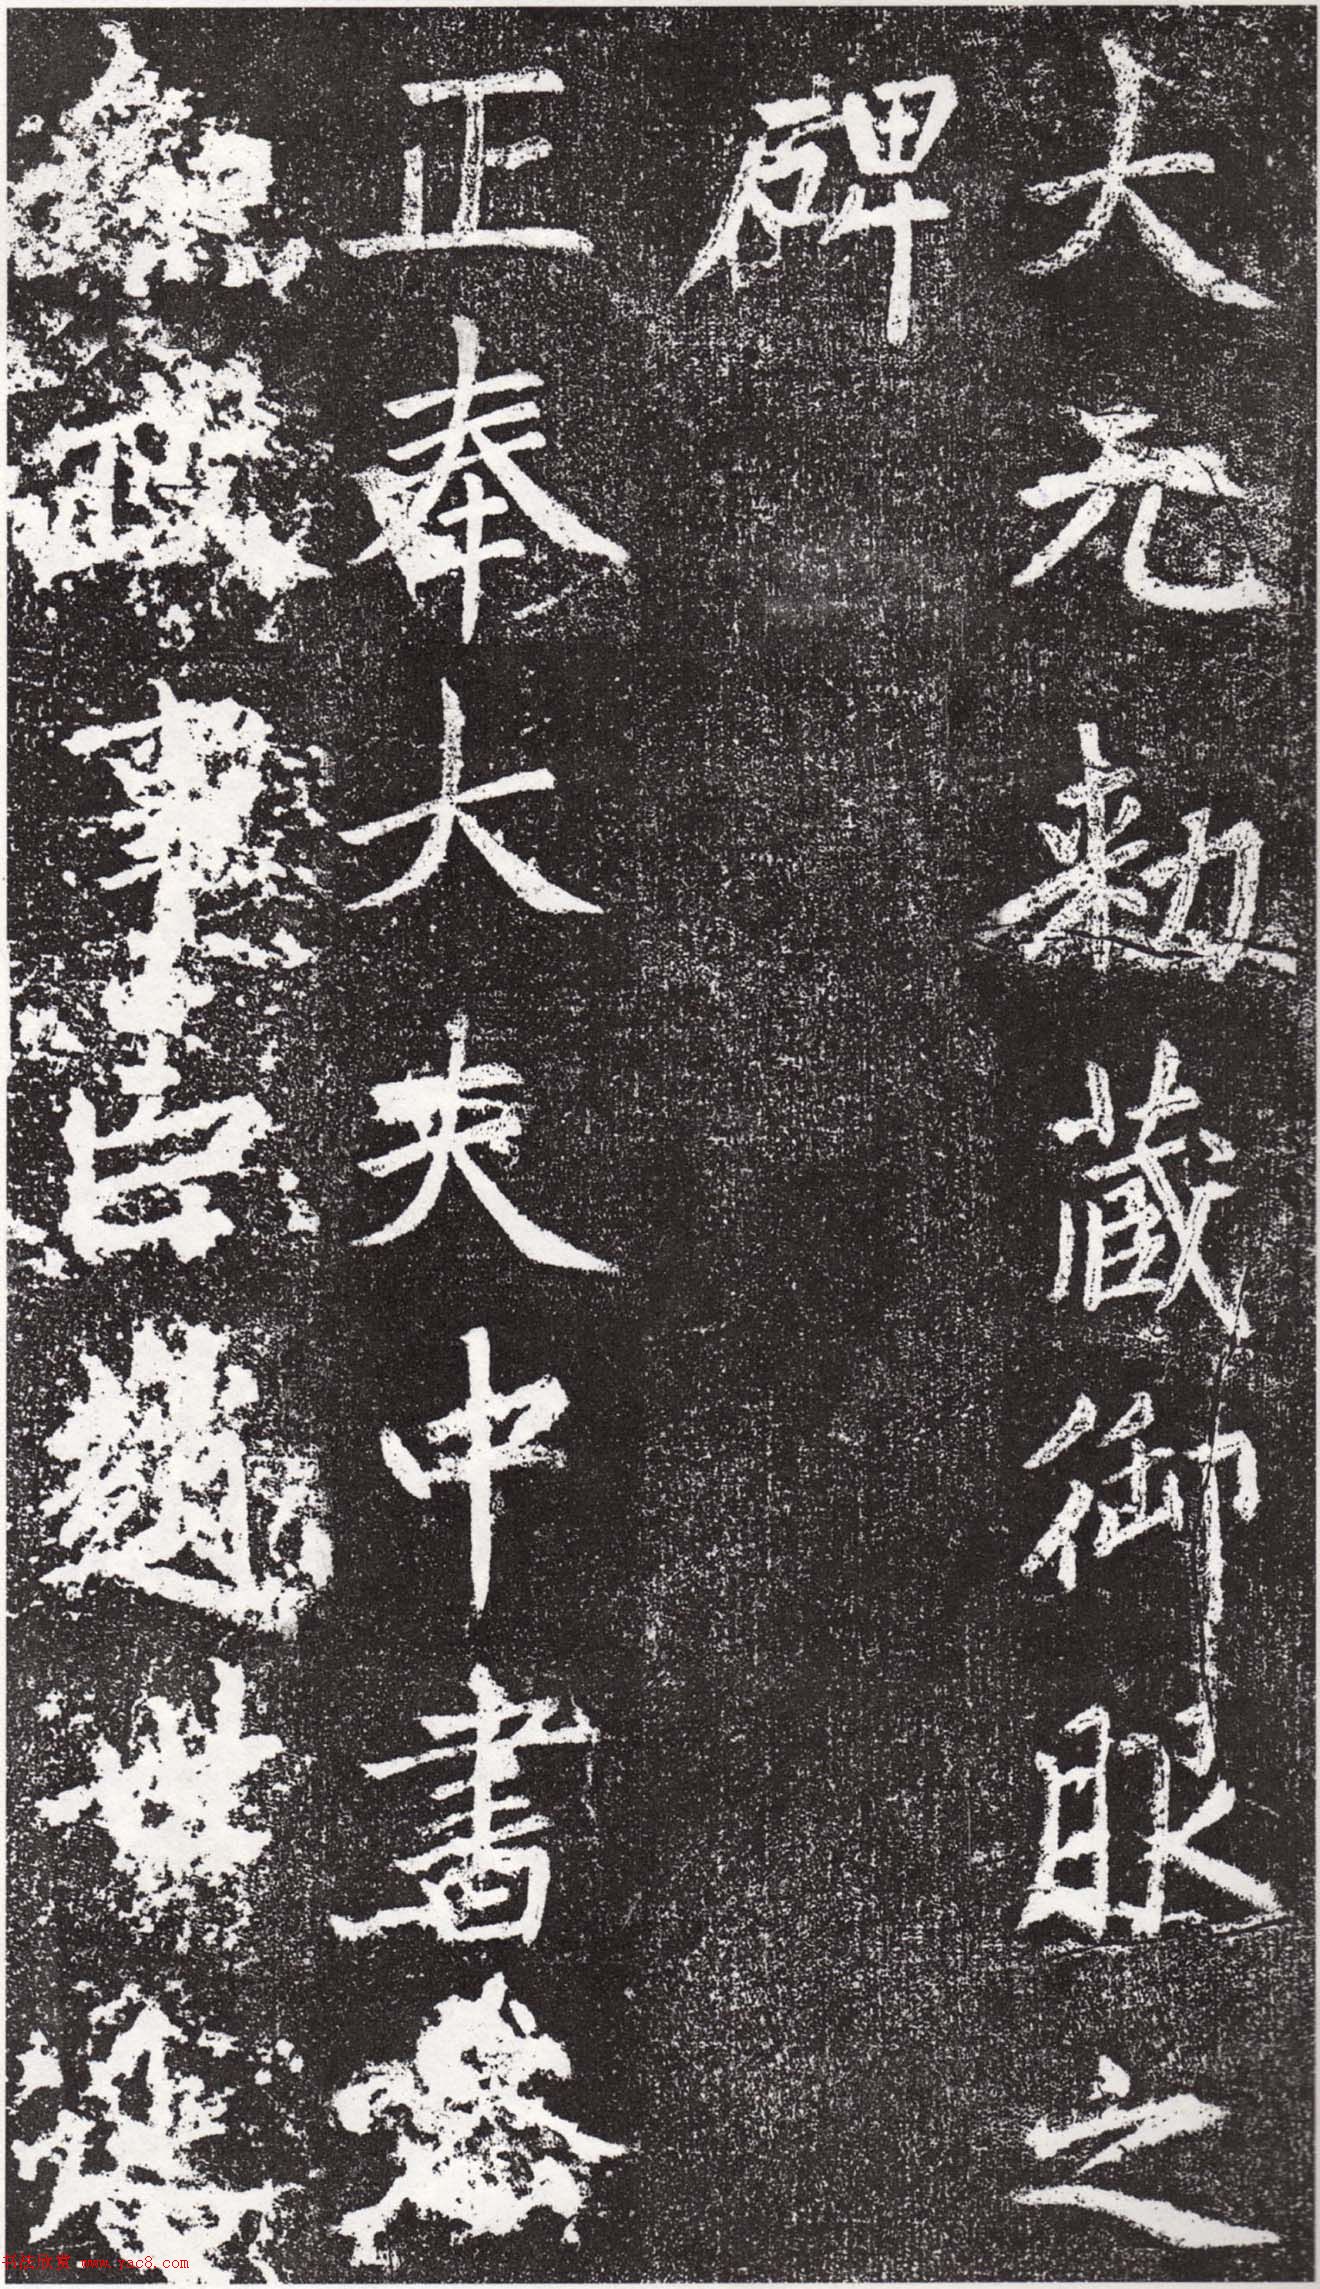 大元勑藏御服之
碑
正奉大夫中書參
政事臣趙世延
书法欣赏 www.yac8.com